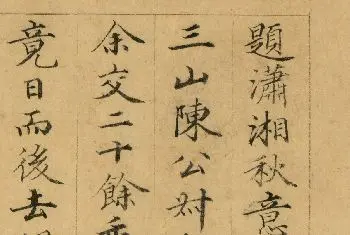 題瀟湘秋意
三山陳公叔
余交二十餘
竟日而後去